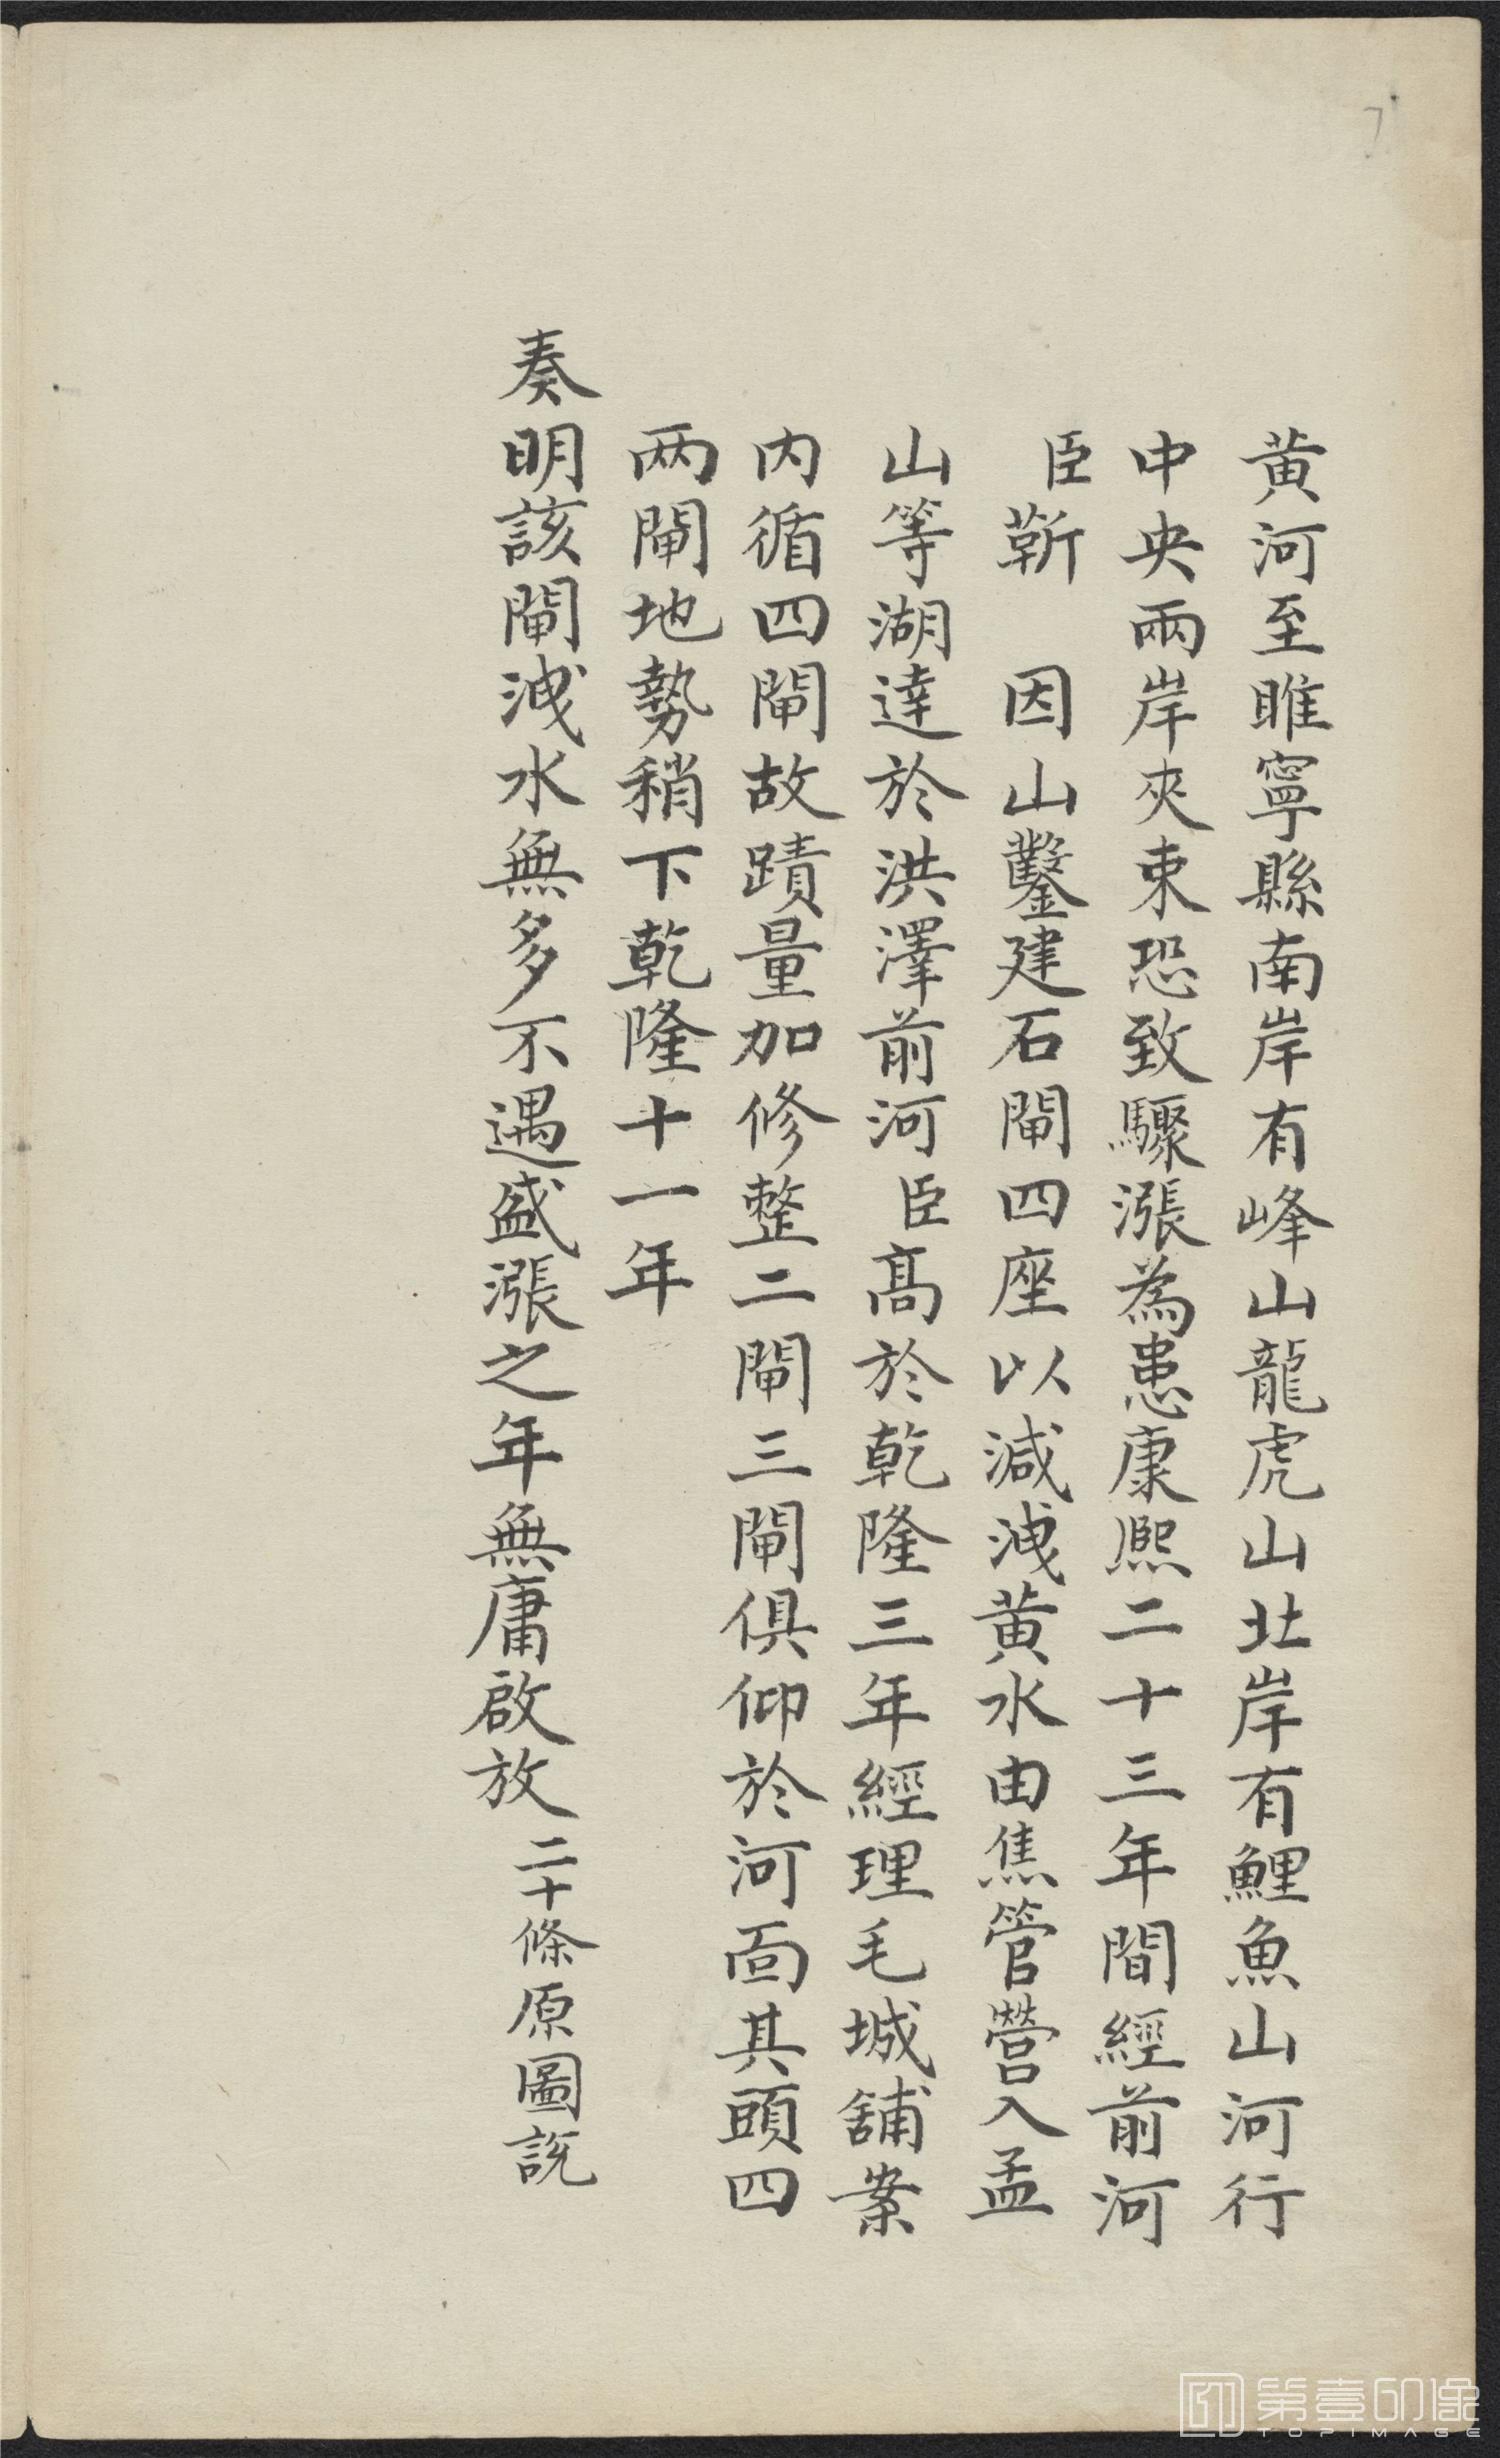 7
黄河至睢寧縣南岸有峰山龍虎山北岸有鯉魚山河行
中央兩岸夾束恐致驟漲為患康熙二十三年間經前河
臣靳　因山鑿建石閘四座以減洩黄水由焦管營入孟
山等湖達於洪澤前河臣高於乾隆三年經理毛城舖案
内循四閘故蹟量加修整二閘三閘俱仰於河面其頭四
两閘地勢稍下乾隆十一年
奏明該閘洩水無多不遇盛漲之年無庸啟放二十條原圖説
第壹印像
TOPIMAGE